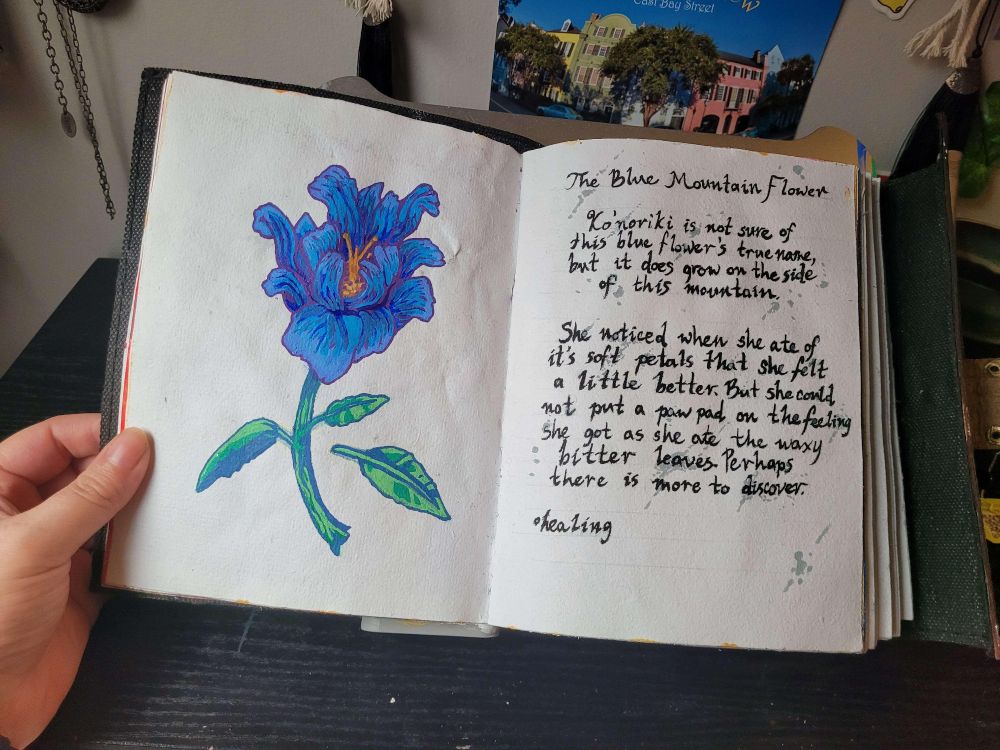 East Bay Street
The Blue Mountain Flower
Ko'noriki is not sure of
this blue flower's true name,
but it does grow on the side
of this mountain.
She noticed when she ate of
it's soft petals that she felt
a little better. But she could
not put a paw pad on the feeling
she got as she ate the waxy
bitter leaves. Perhaps
there is more to discover.
•healing